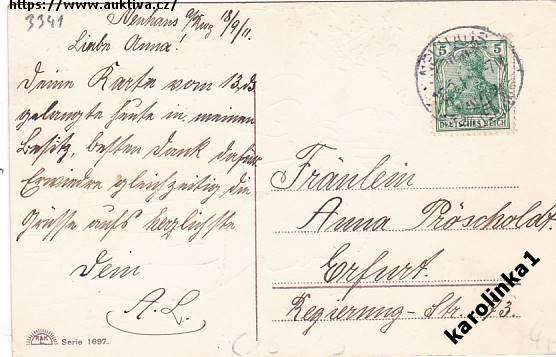 https://www.auktiva.cz/
3341
Neuhaus a/Rwg 18/9/11.
Liebe Anna!
Deine Karte vom 13. ds.
gelangte heute in meinen
Besitz, besten Dank dafür
Erwiedre gleichzeitig die
Grüsse aufs herzlichste
Dein
A. L.
Serie 1697.
5 5
DEUTSCHES REICH
Fräulein
Anna Pröscholdt
Erfurt.
Regierung-Str.
karolinka1